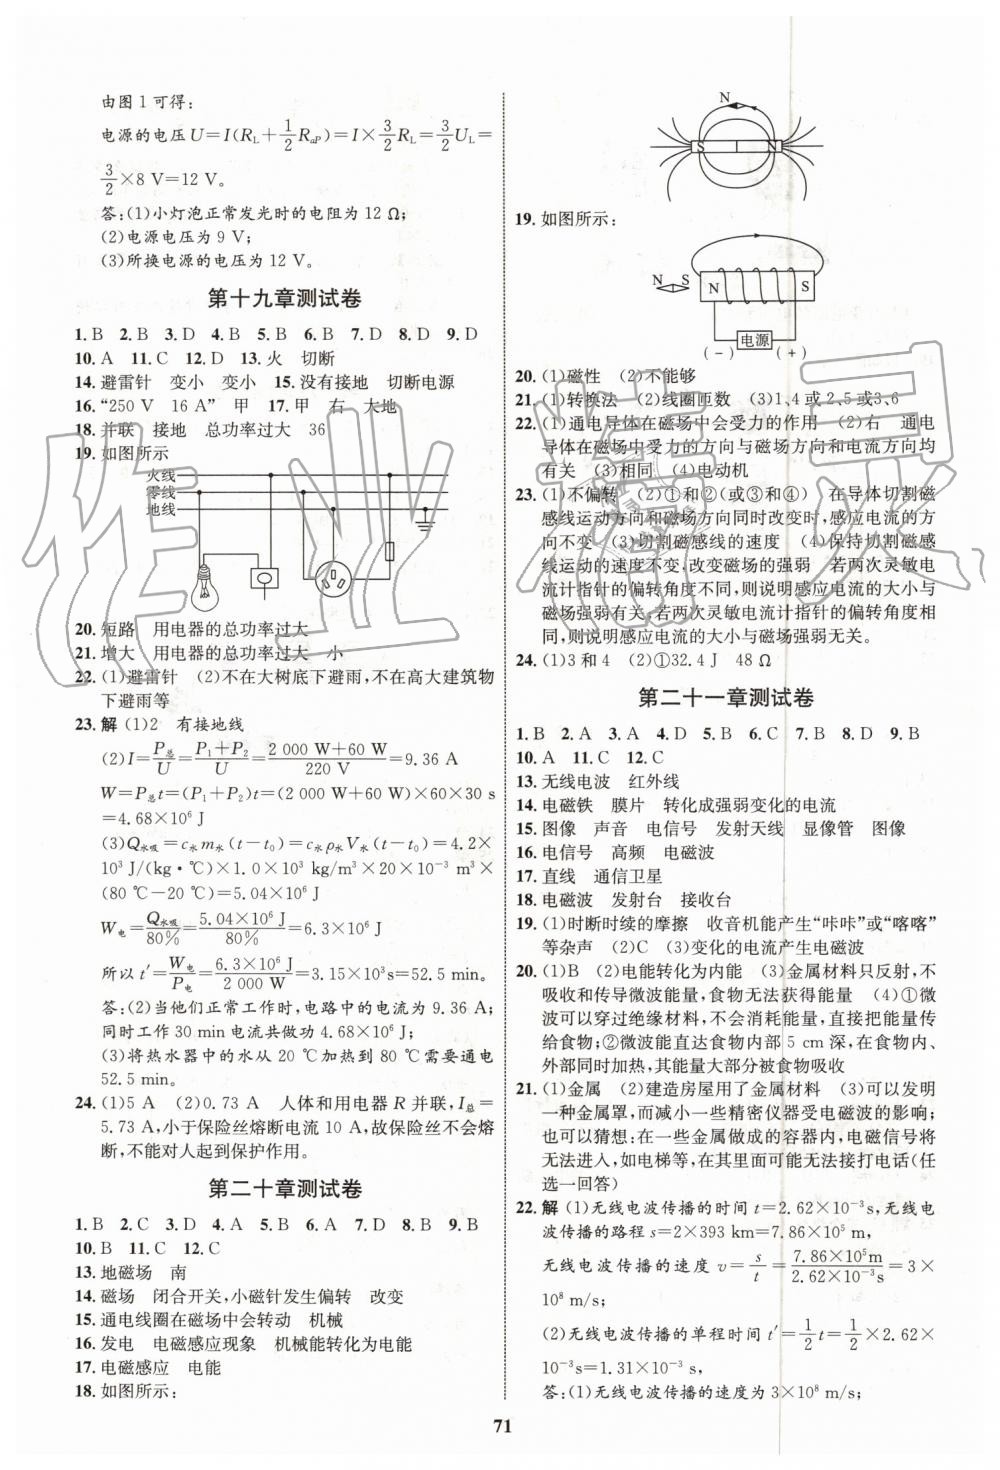 由图1可得:
电源的电压U=I(R_L+1/2R_aP)=I×3/2R_L=3/2U_L=
3/2×8 V=12 V。
答:(1)小灯泡正常发光时的电阻为12 Ω;
(2)电源电压为9 V;
(3)所换电源的电压为12 V。
第十九章测试卷
1.B 2.B 3.D 4.B 5.B 6.B 7.D 8.D 9.D
10.A 11.C 12.D 13.火 切断
14.避雷针 变小 变小 15.没有接地 切断电源
16.“250 V 16 A” 甲 17.甲 右 大地
18.并联 接地 总功率过大 36
19.如图所示
火线
零线
地线
20.短路 用电器的总功率过大
21.增大 用电器的总功率过大 小
22.(1)避雷针 (2)不在大树底下避雨,不在高大建筑物
下避雨等
23.解 (1)2 有接地线
(2)I=P总/U=(P₁+P₂)/U=(2 000 W+60 W)/220 V=9.36 A
W=P总t=(P₁+P₂)t=(2 000 W+60 W)×60×30 s
=4.68×10⁶ J
(3)Q水吸=c水m水(t-t₀)=c水ρ水V水(t-t₀)=4.2×
10³ J/(kg·℃)×1.0×10³ kg/m³×20×10⁻³ m³×
(80 ℃-20 ℃)=5.04×10⁶ J
W电=Q水吸/80%=5.04×10⁶ J/80%=6.3×10⁶ J
所以t′=W电/P电=6.3×10⁶ J/2 000 W=3.15×10³s=52.5 min。
答:(2)当他们正常工作时,电路中的电流为9.36 A;
同时工作30 min电流共做功4.68×10⁶ J;
(3)将热水器中的水从20 ℃加热到80 ℃需要通电
52.5 min。
24.(1)5 A (2)0.73 A 人体和用电器R并联,I总=
5.73 A,小于保险丝熔断电流10 A,故保险丝不会熔
断,不能对人起到保护作用。
第二十章测试卷
1.B 2.C 3.D 4.A 5.B 6.A 7.D 8.B 9.B
10.B 11.C 12.C
13.地磁场 南
14.磁场 闭合开关,小磁针发生偏转 改变
15.通电线圈在磁场中会转动 机械
16.发电 电磁感应现象 机械能转化为电能
17.电磁感应 电能
18.如图所示:
N
S N
19.如图所示:
N S N S
电源
(-) (+)
20.(1)磁性 (2)不能够
21.(1)转换法 (2)线圈匝数 (3)1、4或2、5或3、6
22.(1)通电导体在磁场中会受力的作用 (2)右 通电
导体在磁场中受力的方向与磁场方向和电流方向均
有关 (3)相同 (4)电动机
23.(1)不偏转 (2)①和②(或③和④) 在导体切割磁
感线运动方向和磁场方向同时改变时,感应电流的方
向不变 (3)切割磁感线的速度 (4)保持切割磁感
线运动的速度不变,改变磁场的强弱 若两次灵敏电
流计指针的偏转角度不同,则说明感应电流的大小与
磁场强弱有关;若两次灵敏电流计指针的偏转角度相
同,则说明感应电流的大小与磁场强弱无关。
24.(1)3和4 (2)①32.4 J 48 Ω
第二十一章测试卷
1.B 2.A 3.A 4.D 5.B 6.C 7.B 8.D 9.B
10.A 11.C 12.C
13.无线电波 红外线
14.电磁铁 膜片 转化成强弱变化的电流
15.图像 声音 电信号 发射天线 显像管 图像
16.电信号 高频 电磁波
17.直线 通信卫星
18.电磁波 发射台 接收台
19.(1)时断时续的摩擦 收音机能产生“咔咔”或“喀喀”
等杂声 (2)C (3)变化的电流产生电磁波
20.(1)B (2)电能转化为内能 (3)金属材料只反射,不
吸收和传导微波能量,食物无法获得能量 (4)①微
波可以穿过绝缘材料,不会消耗能量,直接把能量传
给食物;②微波能直达食物内部5 cm深,在食物内、
外部同时加热,其能量大部分被食物吸收
21.(1)金属 (2)建造房屋用了金属材料 (3)可以发明
一种金属罩,而减小一些精密仪器受电磁波的影响;
也可以猜想:在一些金属做成的容器内,电磁信号将
无法进入,如电梯等,在里面可能无法接打电话(任
选一回答)
22.解 (1)无线电波传播的时间t=2.62×10⁻³s,无线电
波传播的路程s=2×393 km=7.86×10⁵m,
无线电波传播的速度v=s/t=7.86×10⁵m/2.62×10⁻³s=3×
10⁸ m/s;
(2)无线电波传播的单程时间t′=1/2t=1/2×2.62×
10⁻³s=1.31×10⁻³s,
答:(1)无线电波传播的速度为3×10⁸ m/s;
71
作业精灵